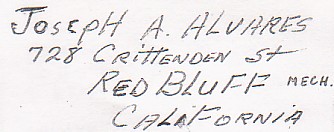 JOSEPH A. ALVARES
728 CRITTENDEN St
RED BLUFF MECH.
CALIFORNIA